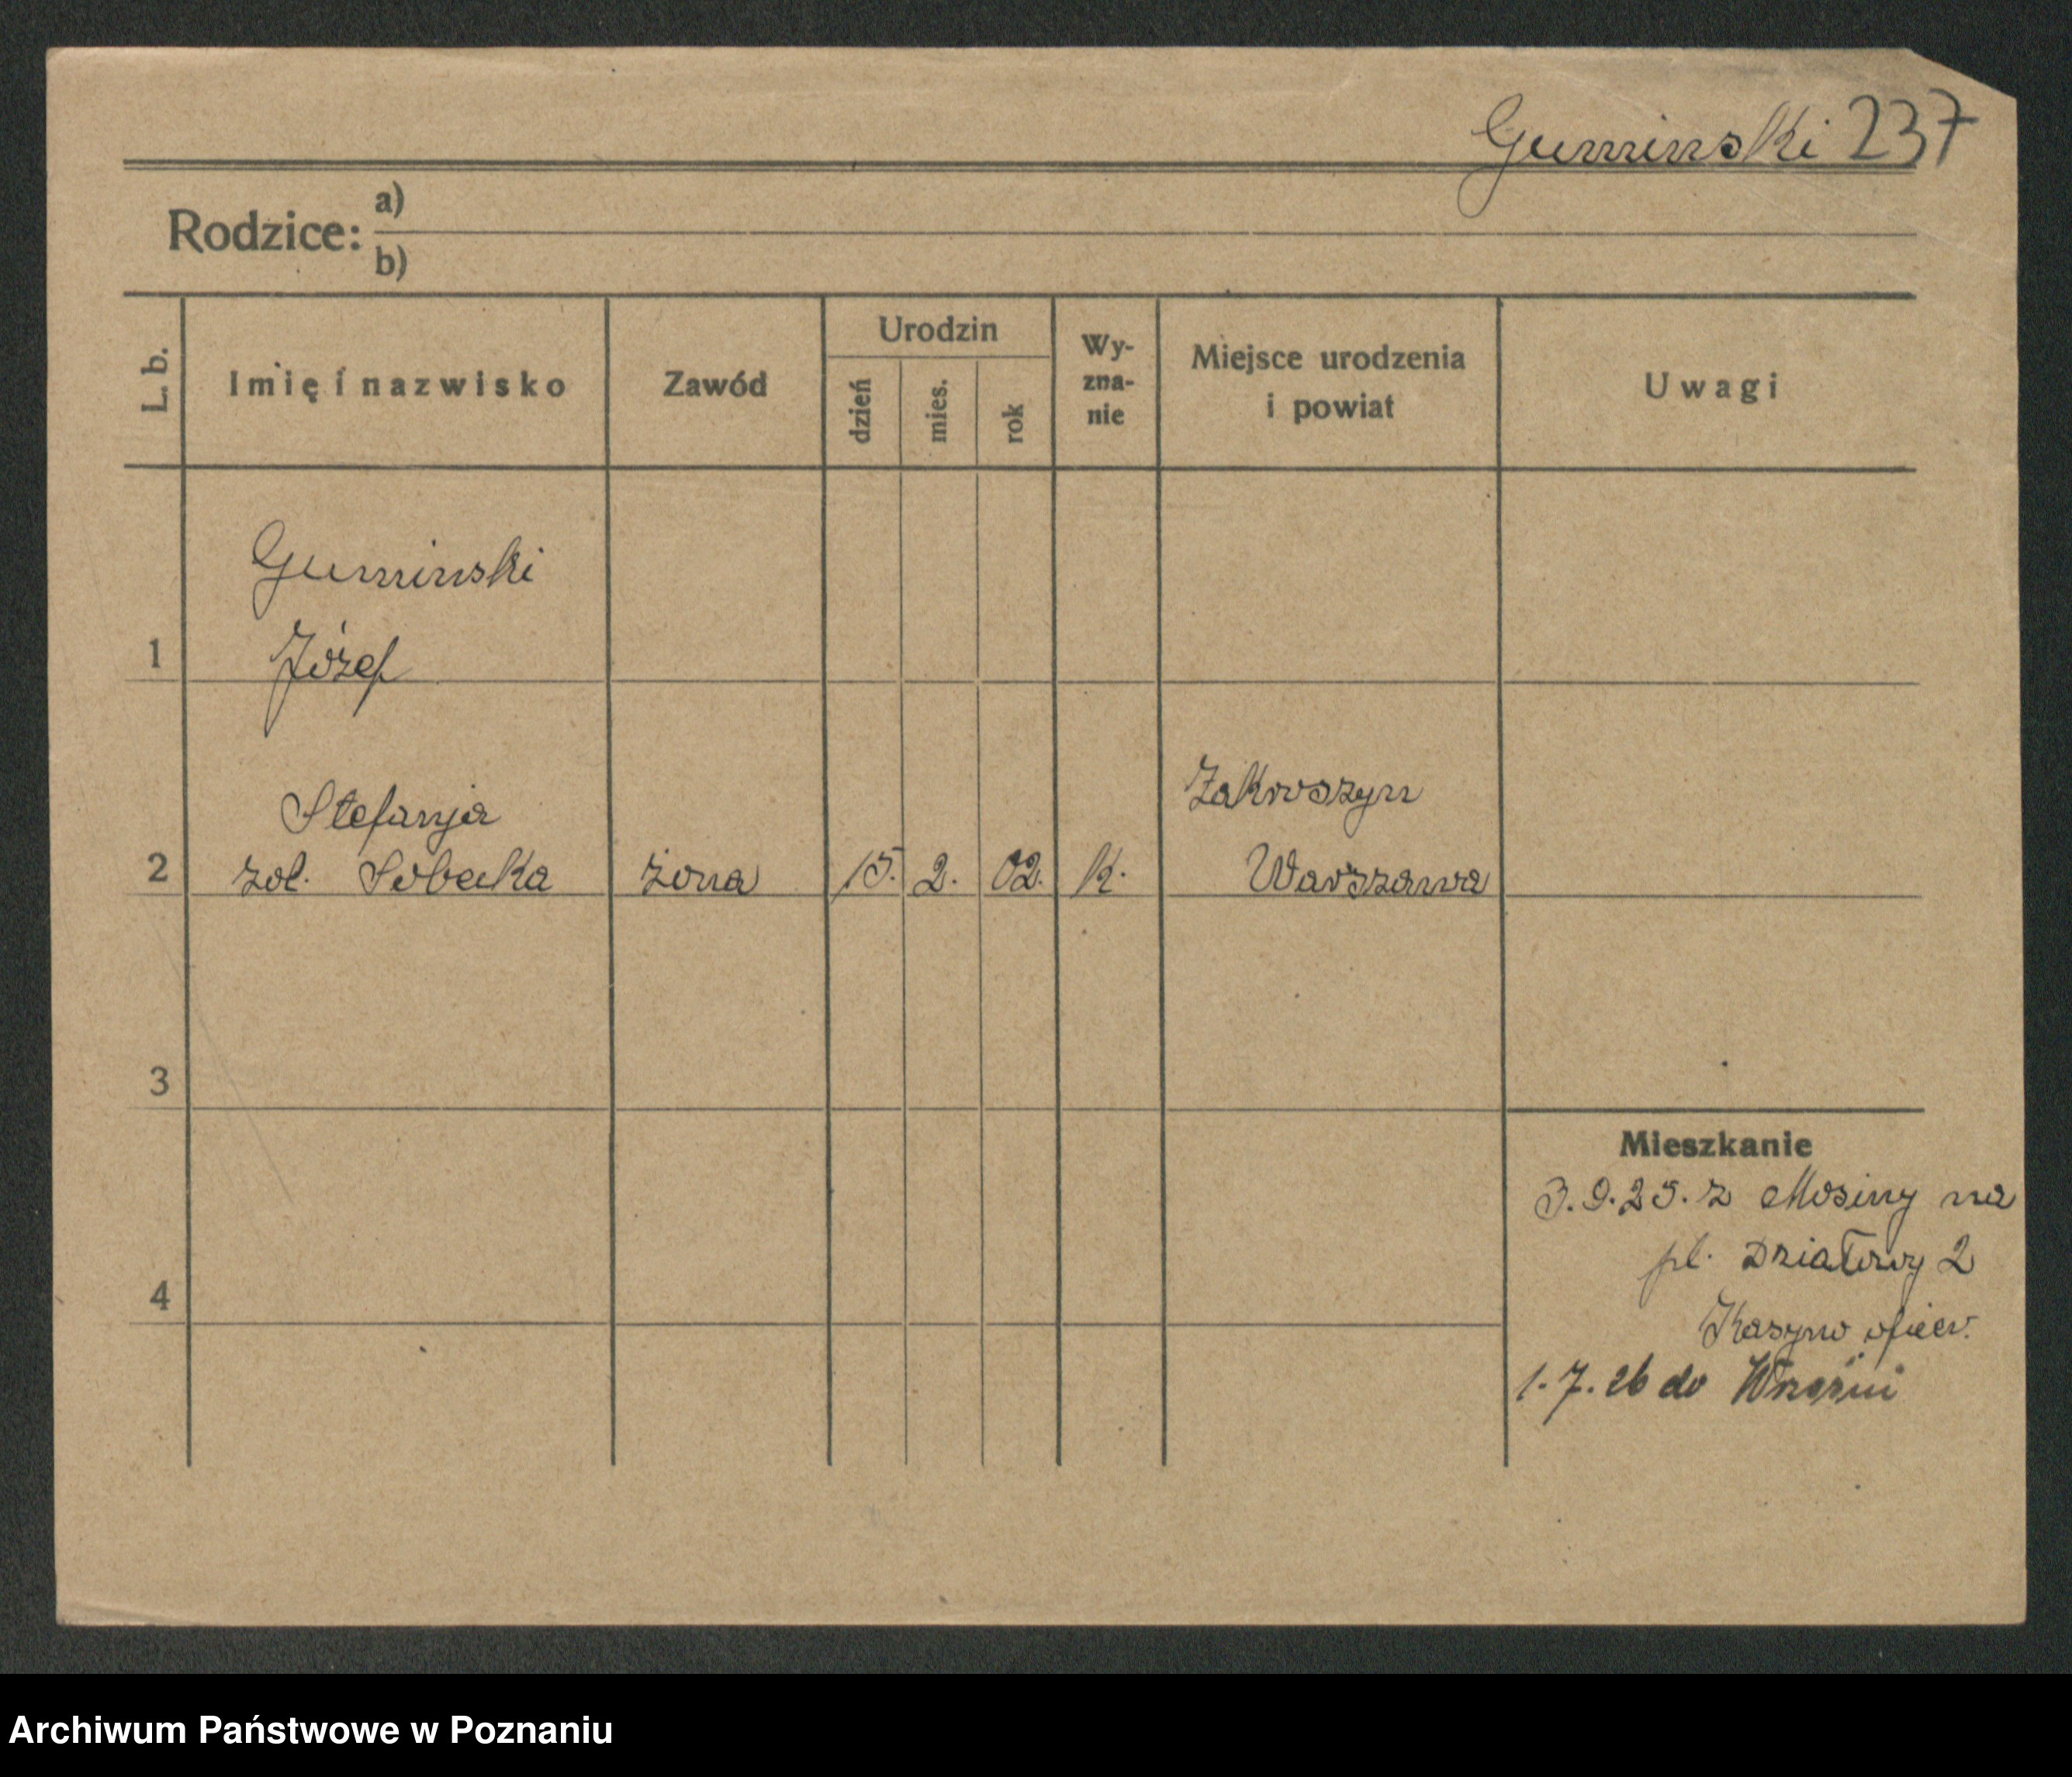 Guminski 237
Rodzice: a)
b)
L. b.
Imię i nazwisko
Zawód
Urodzin
dzień
mies.
rok
Wy-
zna-
nie
Miejsce urodzenia
i powiat
Uwagi
Guminski
1 Józef
Stefanja
Zakroszyn
2 zol. Sobecka żona 15. 2. 02. K. Warszawa
3
Mieszkanie
3.9.25. z Mosiny na
pl. Działowy 2
4
Kasyno oficer.
1.7.26 do Wrześni
Archiwum Państwowe w Poznaniu